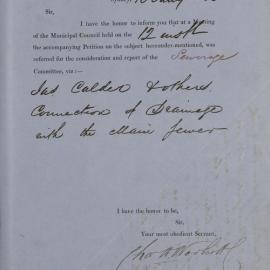 Sir,
I have the honor to inform you that at a Meeting
of the Municipal Council held on the 12 inst
the accompanying Petition on the subject hereunder-mentioned, was
referred for the consideration and report of the Sewerage
Committee, viz:—
Jas Calder & others
Connection of Drainage
with the Main Sewer
I have the honor to be,
Sir,
Your most obedient Servant,